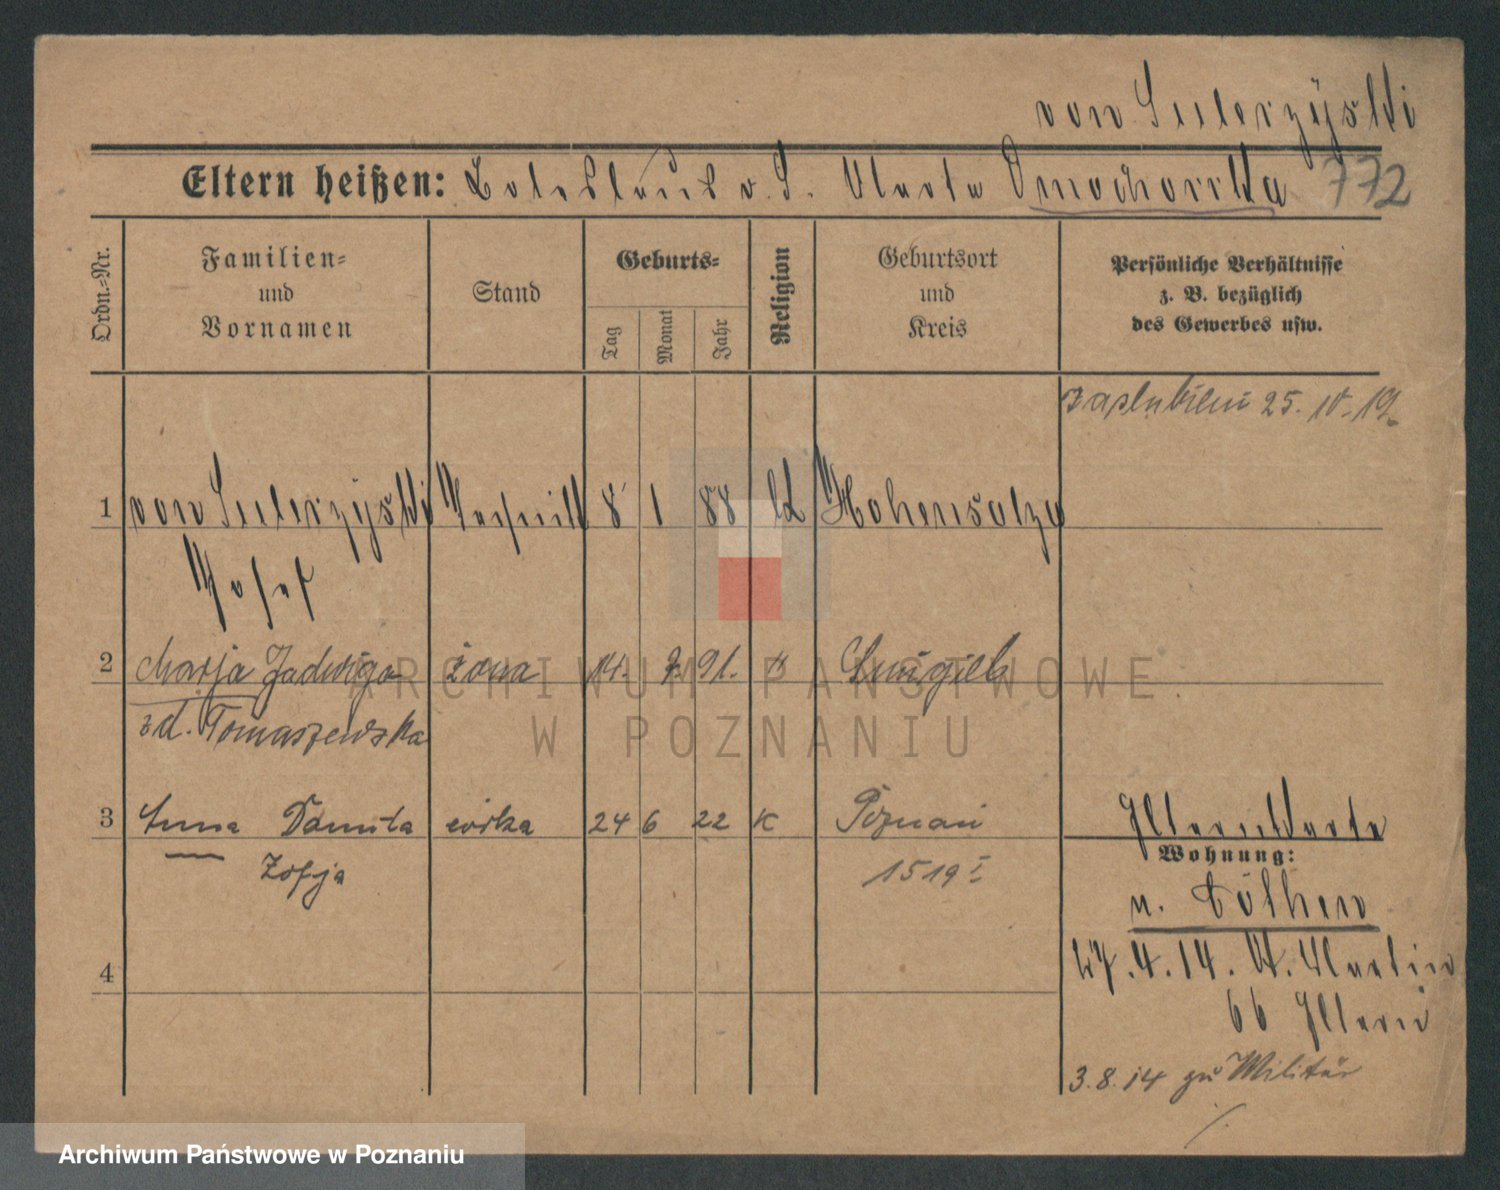 von Sulerzyski
Eltern heißen: Boleslaus v. S. Maria Omochowska 772
Ordn.-Nr.
Familien- und Vornamen
Stand
Geburts-
Tag
Monat
Jahr
Religion
Geburtsort und Kreis
Persönliche Verhältnisse z. B. bezüglich des Gewerbes usw.
zaślubieni 25. 10. 19.
1 von Sulerzyski 8 1 88 Hohensalza
Josef
2 Marja Jadwiga żona 14. 7. 91. Śmigiel
zd. Tomaszewska
3 Anna Danuta córka 24 6 22 K Poznań
Zofja 1519 I
Wohnung:
n. Cöthen
27.4.14. St. Martin
66 Eltern
3.8.14 zu Militär
4
ARCHIWUM PAŃSTWOWE
W POZNANIU
Archiwum Państwowe w Poznaniu